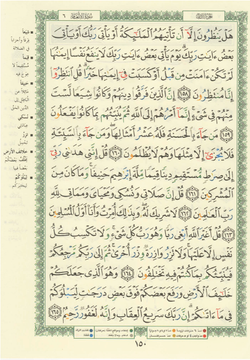 هَلْ يَنظُرُونَ إِلَّآ أَن تَأْتِيَهُمُ ٱلْمَلَـٰٓئِكَةُ أَوْ يَأْتِىَ رَبُّكَ أَوْ يَأْتِىَ
بَعْضُ ءَايَـٰتِ رَبِّكَ يَوْمَ يَأْتِى بَعْضُ ءَايَـٰتِ رَبِّكَ لَا يَنفَعُ نَفْسًا إِيمَـٰنُهَا
لَمْ تَكُنْ ءَامَنَتْ مِن قَبْلُ أَوْ كَسَبَتْ فِىٓ إِيمَـٰنِهَا خَيْرًا قُلِ ٱنتَظِرُوٓا۟
إِنَّا مُنتَظِرُونَ ١٥٨ إِنَّ ٱلَّذِينَ فَرَّقُوا۟ دِينَهُمْ وَكَانُوا۟ شِيَعًا لَّسْتَ
مِنْهُمْ فِى شَىْءٍ إِنَّمَآ أَمْرُهُمْ إِلَى ٱللَّهِ ثُمَّ يُنَبِّئُهُم بِمَا كَانُوا۟ يَفْعَلُونَ
١٥٩ مَن جَآءَ بِٱلْحَسَنَةِ فَلَهُۥ عَشْرُ أَمْثَالِهَا وَمَن جَآءَ بِٱلسَّيِّئَةِ
فَلَا يُجْزَىٰٓ إِلَّا مِثْلَهَا وَهُمْ لَا يُظْلَمُونَ ١٦٠ قُلْ إِنَّنِى هَدَىٰنِى رَبِّىٓ
إِلَىٰ صِرَٰطٍ مُّسْتَقِيمٍ دِينًا قِيَمًا مِّلَّةَ إِبْرَٰهِيمَ حَنِيفًا وَمَا كَانَ مِنَ
ٱلْمُشْرِكِينَ ١٦١ قُلْ إِنَّ صَلَاتِى وَنُسُكِى وَمَحْيَاىَ وَمَمَاتِى لِلَّهِ
رَبِّ ٱلْعَـٰلَمِينَ ١٦٢ لَا شَرِيكَ لَهُۥ وَبِذَٰلِكَ أُمِرْتُ وَأَنَا۠ أَوَّلُ ٱلْمُسْلِمِينَ
١٦٣ قُلْ أَغَيْرَ ٱللَّهِ أَبْغِى رَبًّا وَهُوَ رَبُّ كُلِّ شَىْءٍ وَلَا تَكْسِبُ كُلُّ
نَفْسٍ إِلَّا عَلَيْهَا وَلَا تَزِرُ وَازِرَةٌ وِزْرَ أُخْرَىٰ ثُمَّ إِلَىٰ رَبِّكُم مَّرْجِعُكُمْ
فَيُنَبِّئُكُم بِمَا كُنتُمْ فِيهِ تَخْتَلِفُونَ ١٦٤ وَهُوَ ٱلَّذِى جَعَلَكُمْ
خَلَـٰٓئِفَ ٱلْأَرْضِ وَرَفَعَ بَعْضَكُمْ فَوْقَ بَعْضٍ دَرَجَـٰتٍ لِّيَبْلُوَكُمْ
فِى مَآ ءَاتَىٰكُمْ إِنَّ رَبَّكَ سَرِيعُ ٱلْعِقَابِ وَإِنَّهُۥ لَغَفُورٌ رَّحِيمٌۢ ١٦٥
١٥٠